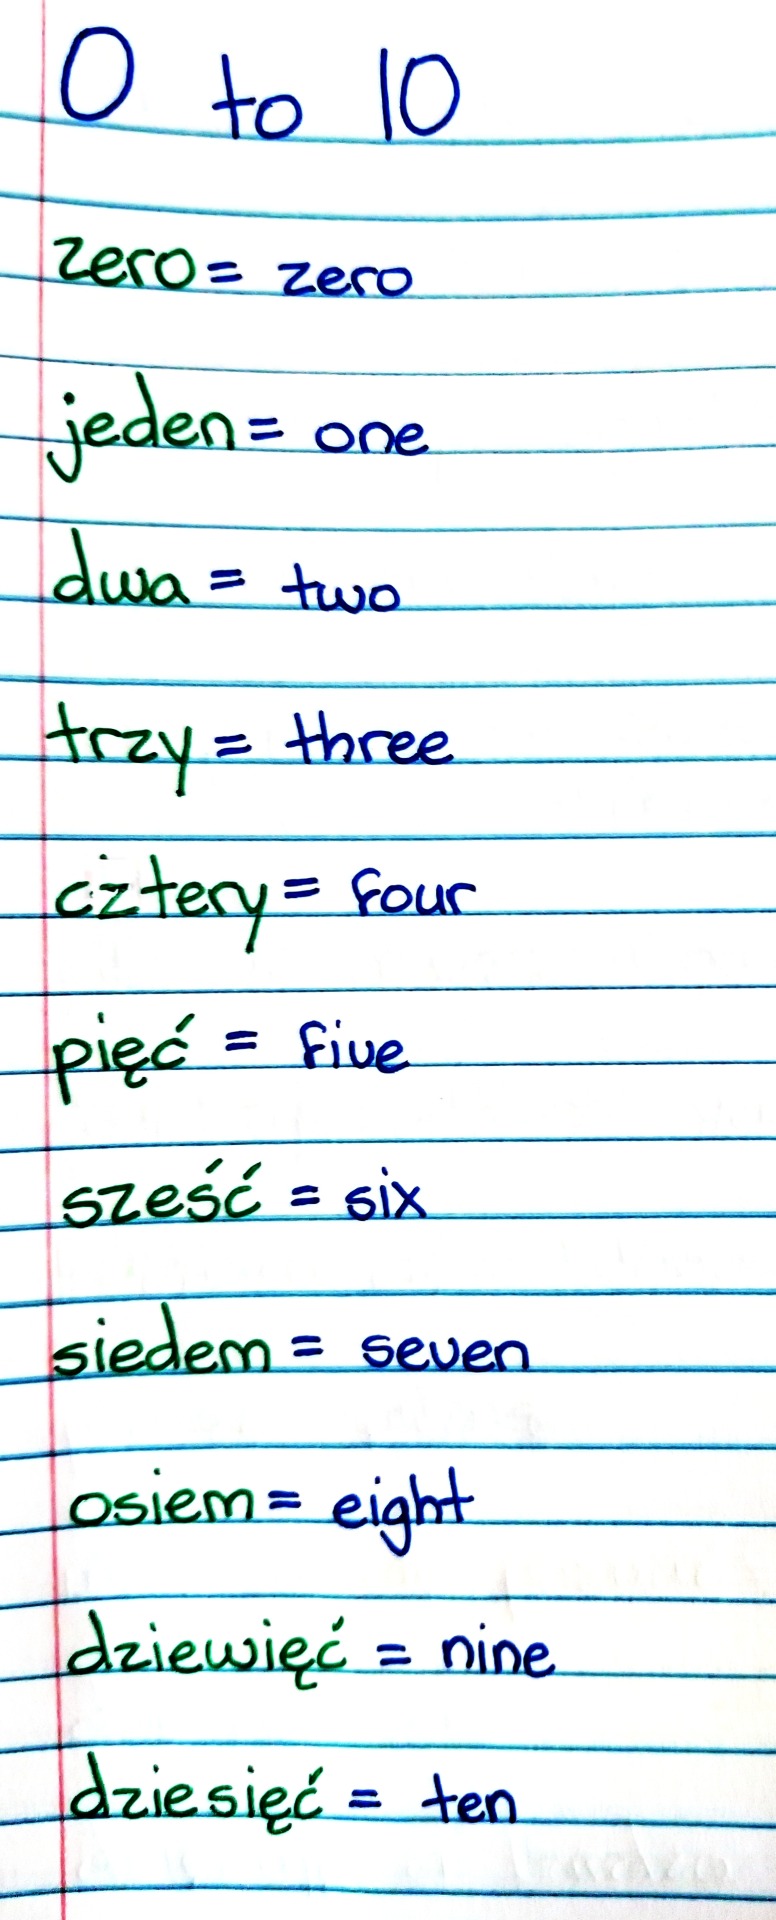 0 to 10
zero = zero
jeden = one
dwa = two
trzy = three
cżtery = four
pięć = five
sześć = six
siedem = seven
osiem = eight
dziewięć = nine
dziesięć = ten